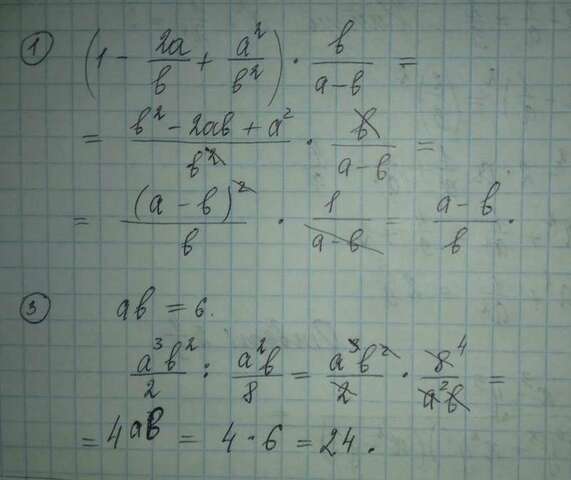 1 (1 - 2a/b + a²/b²) · b/(a-b) =
= (b² - 2ab + a²)/b² · b/(a-b) =
= (a - b)²/b · 1/(a-b) = (a-b)/b .
3 ab = 6.
a³b²/2 : a²b/8 = a³b²/2 · 8⁴/a²b =
= 4ab = 4·6 = 24 .